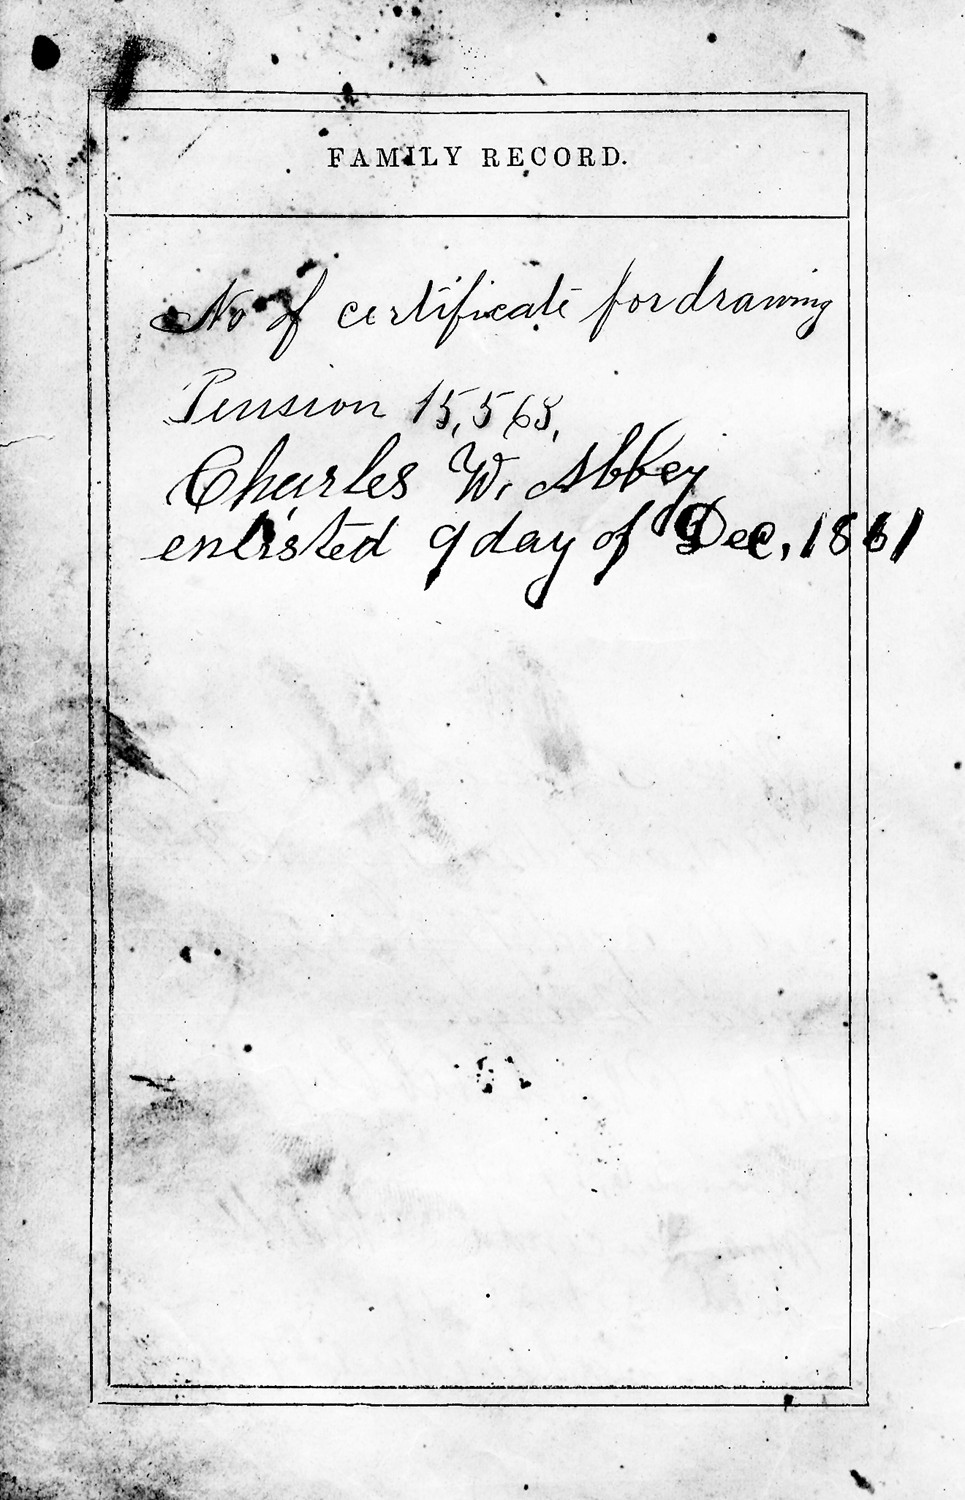 FAMILY RECORD.
No of certificate for drawing
Pension 15,563,
Charles W. Abbey
enlisted 9 day of Dec, 1861